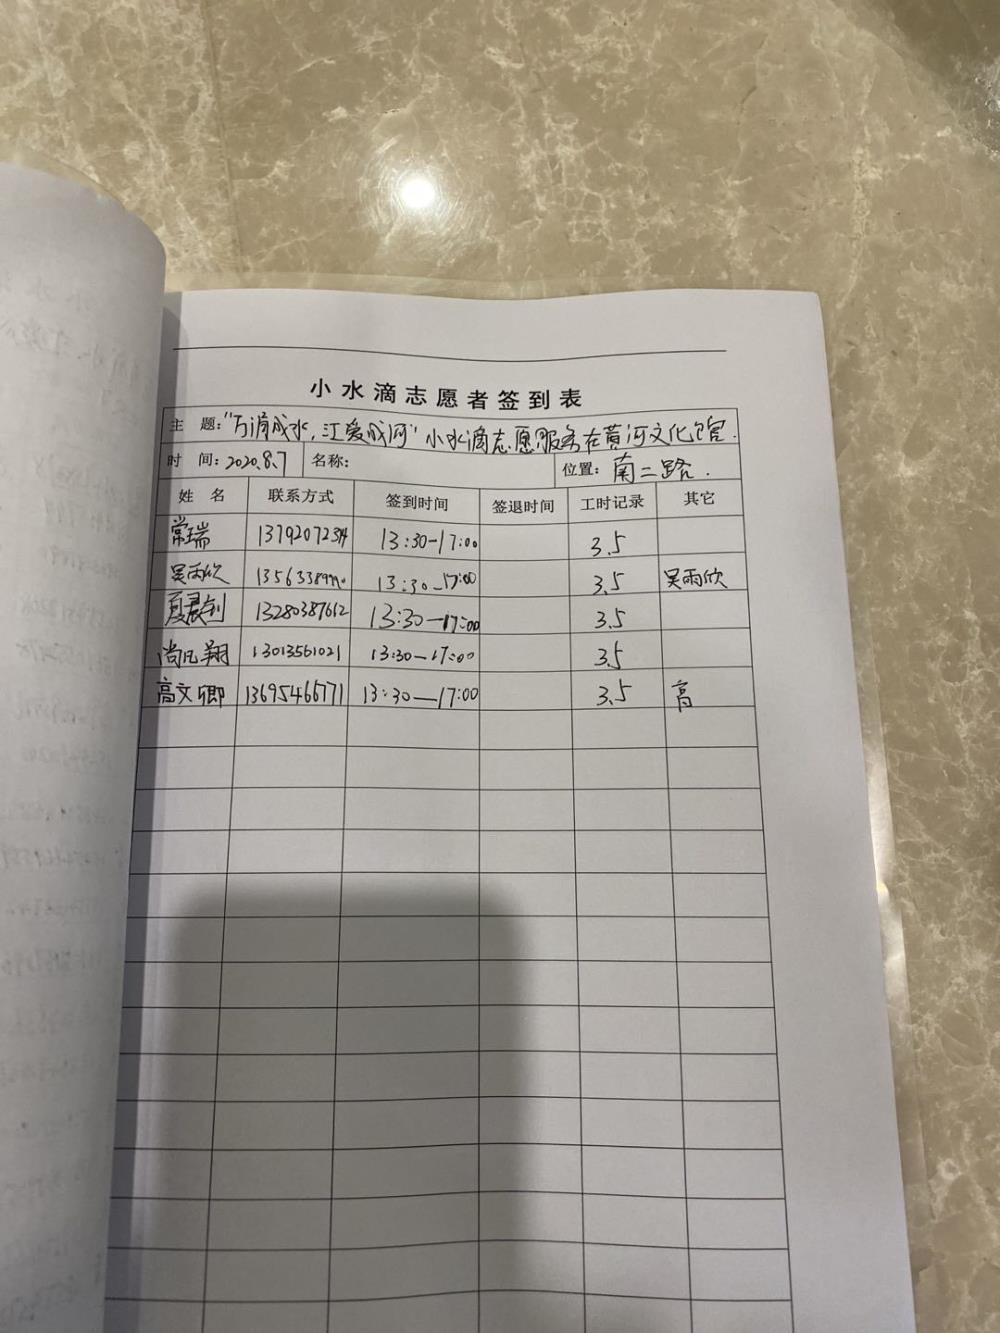 小水滴志愿者签到表
主 题：“万滴成水，汇爱成河”小水滴志愿服务在黄河文化馆．
时 间：2020.8.7 名称： 位置：南二路．
姓 名 联系方式 签到时间 签退时间 工时记录 其它
常瑞 13:30-17:00 3.5
吴雨欣 13:30-17:00 3.5 吴雨欣
13280387612 13:30—17:00 3.5
尚凡翔 13013561021 13:30—17:00 3.5
高文卿 13695466771 13:30—17:00 3.5 高